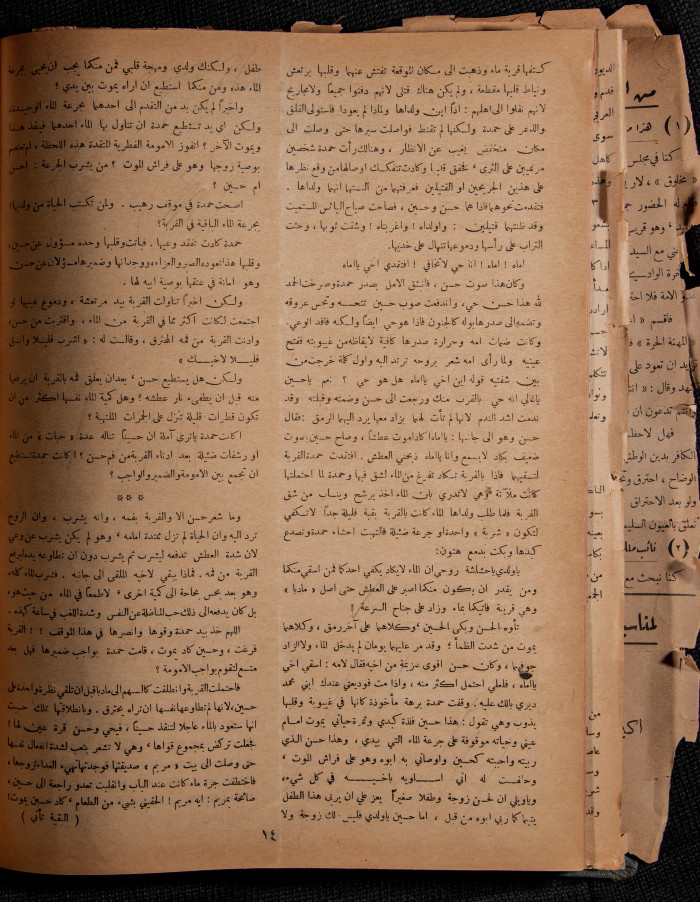 كتفها قربة ماء وذهبت الى مكان الموقعة تفتش عنهما وقلبها يرتعش
ونياط قلبها مقطعة ، ولم يكن هناك قتلى لانهم دفنوا جميعاً ولامجاريح
لانهم نقلوا الى اهلهم : اذاً اين ولداها ولماذا لم يعودا فاستولى القلق
والذعر على حمدة ولكنها لم تقنط فواصلت سيرها حتى وصلت الى
مكان منخفض يغيب عن الانظار ، وهنالك رأت حمدة شخصين
مرميين على الثرى ، فخفق قلبها وكادت تتفكك اوصالها من وقع نظرها
على هذين الجريحين او القتيلين فعرفتهما من ألبستهما انهما ولداها .
فتقدمت نحوهما فاذا هما حسن وحسين ، فصاحت صياح اليائس المستميت
وقد ظنتهما قتيلين : واولداه ! واغربتاه ! وشقت ثوبها ، وحثت
التراب على رأسها ودموعها تنهال على خديها.
اماه ! اماه ! انا حي لاتخافي ! افتقدي اخي يااماه
وكان هذا صوت حسن ، فانبثق الامل بصدر حمدة وصرخت الحمد
لله هذا حسن حي، واندفعت صوب حسين تتحسسه وتجس عروقه
وتضمه الى صدرها بوله كالجنون فاذا هو حي ايضاً ولكنه فاقد الوعي.
وكانت ضمات امه وحرارة صدرها كافية لايقاظه من غيبوبته ففتح
عينيه ولما رأى امه شعر بروحه ترتد اليه واول كلمة خرجت من
بين شفتيه قوله اين اخي يااماه هل هو حي ؟ نعم ياحسين
ياغالي انه حي بالقرب منك ورجعت الى حسن وضمته وقبلته وقد
ندمت اشد الندم لانها لم تأت لهما بزاد معها يرد اليهما الرمق :فقال
حسن وهو الى جانبها : يااماه اكاد اموت عطشاً ، وصاح حسين بصوت
ضعيف يكاد لايسمع وانا يااماه ذبحني العطش . افتقدت حمدة القربة
لتسقيهما فاذا بالقربة تكاد تفرغ من الماء لشق فيها وحمدة لما احتملتها
كانت ملآنة وهي لاتدري بان الماء اخذ يرشح وينساب من شق
القربة فلما طلب ولداها الماء كانت بالقربة بقية قليلة جداً لاتكفي
لتكون « شربة » واحدة او جرعة ضئيلة فالتهبت احشاء حمدة وتصدع
كبدها وبكت بدمع هتون:
ياولدي ياحشاشة روحي ان الماء لايكاد يكفي احدكما فمن اسقي منكما
ومن يقدر ان يكون منكما اصبر على العطش حتى اصل « مادبا »
وهي قريبة فأتيكما بماء وزاد على جناح السرعة !
تأوه الحسن وبكى الحسين ، وكلاهما على آخر رمق ، وكلاهما
يموت من شدت الظمأ ؛ وقد مر عليهما يومان لم يدخل الماء ولا الزاد
جوفهما ، وكان حسن اقوى عزيمة من اخيه فقال لامه : اسقي اخي
يااماه ، فلعلي احتمل اكثر منه ، واذا مت فوديعتي عندك ابني محمد
ديري بالك عليه . وقفت حمدة برهة مأخوذة كانها في غيبوبة وقلبها
يذوب وهي تقول : هذا حسين فلذة كبدي وثمرة حياتي يموت امام
عيني وحياته موقوفة على جرعة الماء التي بيدي ، وهذا حسن الذي
ربيته واحببته كحسين واوصاني به ابوه وهو على فراش الموت ،
وحلفت له اني اساويه باخيه في كل شيء،
وياويلي ان لحسن زوجة وطفلا صغيراً يعز علي ان يربى هذا الطفل
يتيماً كما ربي ابوه من قبل ، اما حسين ياولدي فليس لك زوجة ولا
طفل ، ولكنك ولدي ومهجة قلبي فمن منكما يجب ان يحيى بجرعة
الماء هذه ، ومن منكما استطيع ان اراه يموت بين يدي ؟
واخيراً لم يكن بد من التقدم الى احدهما بجرعة الماء الوحيدة،
ولكن اي يد تستطيع حمدة ان تناول بها الماء احدهما فينقذ هذا
ويموت الآخر ؟ اتفوز الامومة الفطرية التقدمة هذه اللحظة ، ام تعتصم
بوصية زوجها وهو على فراش الموت ؟ من يشرب الجرعة : احسن
ام حسين ؟
اصبحت حمدة في موقف رهيب . ولمن تكتب الحياة من ولديها
بجرعة الماء الباقية في القربة؟
حمدة كادت تفقد وعيها . فباتت وقلبها وحده مسؤول عن حسين،
وقلبها هذا تعوده الصبر والعزاء، ووجدانها وضميرها مسؤلان عن حسن
وهو امانة في عنقها بوصية ابيه لها .
ولكن اخيراً تناولت القربة بيد مرتعشة ، ودموع عينيها لو
اجتمعت لكانت اكثر مما في القربة من الماء ، واقتربت من حسن،
وادنت القربة من فمه المحترق ، وقالت له : « اشرب قليلا وابق
قليلا لاخيك »
ولكن هل يستطيع حسن ، بعد ان يعلق فمه بالقربة ان يرفعها
منه قبل ان يطفىء نار عطشه ؟ وهل كمية الماء نفسها اكثر من ان
تكون قطرات قليلة تنزل على الجمرات الملتهبة ؟
اكانت حمدة ياترى آملة ان حسيناً تناله عدة « حبات » من الماء
او رشفات ضئيلة بعد ادناء القربة من فم حسن ؟ اكانت حمدة تستطيع
ان تجمع بين الامومة والضمير والواجب ؟
* * *
وما شعر حسن الا والقربة بفمه ، وانه يشرب ، وان الروح
ترد اليه وان الحياة لم تزل ممتدة امامه ، وهو لم يكن يشرب عن وعي
لان شدة العطش تدفعه ليشرب ثم يشرب دون ان تطاوعه يده ليرفع
القربة من فمه . فماذا يبقي لاخيه الملقى الى جانبه . فشرب الماء كله،
وهو بعد يحس بحاجة الى كمية اخرى ، لاطمعاً في الماء من حيث هو،
بل كان يدفعه الى ذلك حب المناضلة عن النفس وشدة اللغب في ساعة كهذه .
اللهم خذ بيد حمدة وقوها وانصرها في هذا الموقف ! ! القربة
فرغت ، وحسين كاد يموت ، قامت حمدة بواجب ضميرها فهل بعد
متسع لتقوم بواجب الامومة ؟
فاحتملت القربة وانطلقت كالسهم الى مادبا قبل ان تلقي نظرة واحدة على
حسين، لانها لم تطاوعها نفسها ان تراه يحترق . وبانطلاقتها تلك حسبت
انها ستعود بالماء عاجلا لتنقذ حسيناً ، فيحي وحسن قرة عين لها !
فجعلت تركض بمجموع قواها ، وهي لا تشعر بتعب لشدة انفعال نفسها
حتى وصلت الى بيت « مريم » صديقتها فوجدتها تهيء الغداء لزوجها،
فاختطفت جرة ماء كانت عند الباب وانقلبت تعدو راجعة الى حسين ،
صائحة بمريم : ايه مريم ! الحقيني بشيء من الطعام ، كاد حسين يموت!
( البقية تأتي )
١٤
(١) هذا
كنا في مجلس
(٢) نائب
كنا نبحث مع